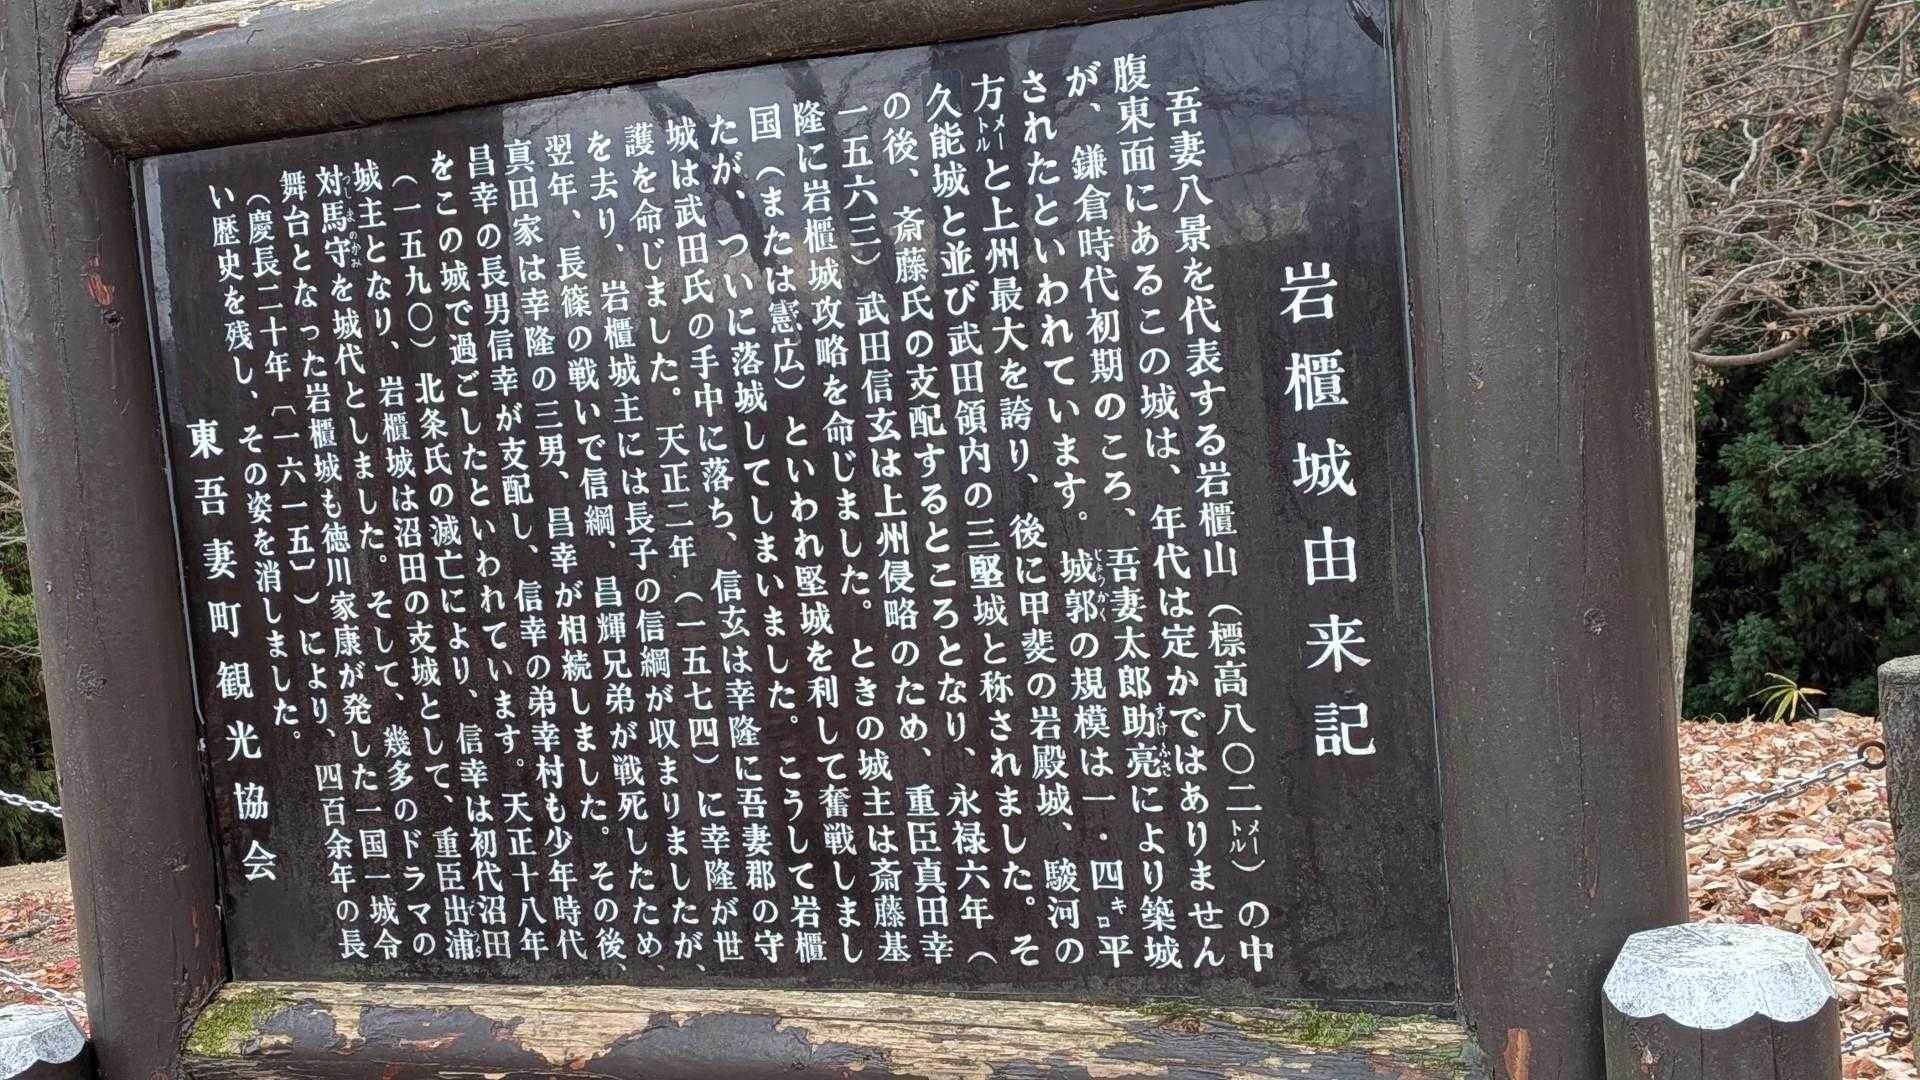 岩櫃城由来記
吾妻八景を代表する岩櫃山（標高八〇二メートル）の中
腹東面にあるこの城は、年代は定かではありません
が、鎌倉時代初期のころ、吾妻太郎助亮すけふさにより築城
されたといわれています。城郭じょうかくの規模は一・四キロ平
方メートルと上州最大を誇り、後に甲斐の岩殿城、駿河の
久能城と並び武田領内の三堅城と称されました。そ
の後、斎藤氏の支配するところとなり、永禄六年（
一五六三）武田信玄は上州侵略のため、重臣真田幸
隆に岩櫃城攻略を命じました。ときの城主は斎藤基
国（または憲広）といわれ堅城を利して奮戦しまし
たが、ついに落城してしまいました。こうして岩櫃
城は武田氏の手中に落ち、信玄は幸隆に吾妻郡の守
護を命じました。天正二年（一五七四）に幸隆が世
を去り、岩櫃城主には長子の信綱が収まりましたが、
翌年、長篠の戦いで信綱、昌輝兄弟が戦死したため、
真田家は幸隆の三男、昌幸が相続しました。その後、
昌幸の長男信幸が支配し、信幸の弟幸村も少年時代
をこの城で過ごしたといわれています。天正十八年
（一五九〇）北条氏の滅亡により、信幸は初代沼田
城主となり、岩櫃城は沼田の支城として、重臣出浦
対馬守つしまのかみを城代としました。そして、幾多のドラマの
舞台となった岩櫃城も徳川家康が発した一国一城令
（慶長二十年〔一六一五〕）により、四百余年の長
い歴史を残し、その姿を消しました。
東吾妻町観光協会